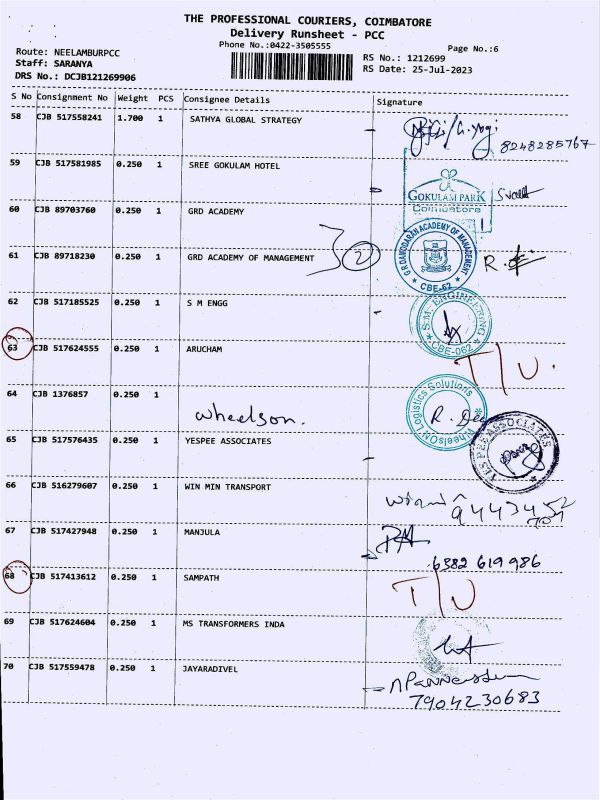 THE PROFESSIONAL COURIERS, COIMBATORE
Delivery Runsheet - PCC
Phone No.:0422-3505555
Page No.:6
Route: NEELAMBURPCC
Staff: SARANYA
DRS No.: DCJB121269906
RS No.: 1212699
RS Date: 25-Jul-2023
S No Consignment No Weight PCS Consignee Details Signature
58 CJB 517558241 1.700 1 SATHYA GLOBAL STRATEGY
8248285767
59 CJB 517581985 0.250 1 SREE GOKULAM HOTEL
GOKULAM PARK
Coimbatore
60 CJB 89703760 0.250 1 GRD ACADEMY
61 CJB 89718230 0.250 1 GRD ACADEMY OF MANAGEMENT
2
G R DAMODARAN ACADEMY OF MANAGEMENT
* CBE-62 *
62 CJB 517185525 0.250 1 S M ENGG
S.M. ENGINEERING
* CBE-062 *
63 CJB 517624555 0.250 1 ARUCHAM
T/U.
64 CJB 1376857 0.250 1
Wheelson.
WheelsON Logistics Solutions
65 CJB 517576435 0.250 1 YESPEE ASSOCIATES
YES PEE ASSOCIATES
66 CJB 516279607 0.250 1 WIN MIN TRANSPORT
67 CJB 517427948 0.250 1 MANJULA
6382 619 986
68 CJB 517413612 0.250 1 SAMPATH
T/U
69 CJB 517624604 0.250 1 MS TRANSFORMERS INDA
70 CJB 517559478 0.250 1 JAYARADIVEL
7904230683